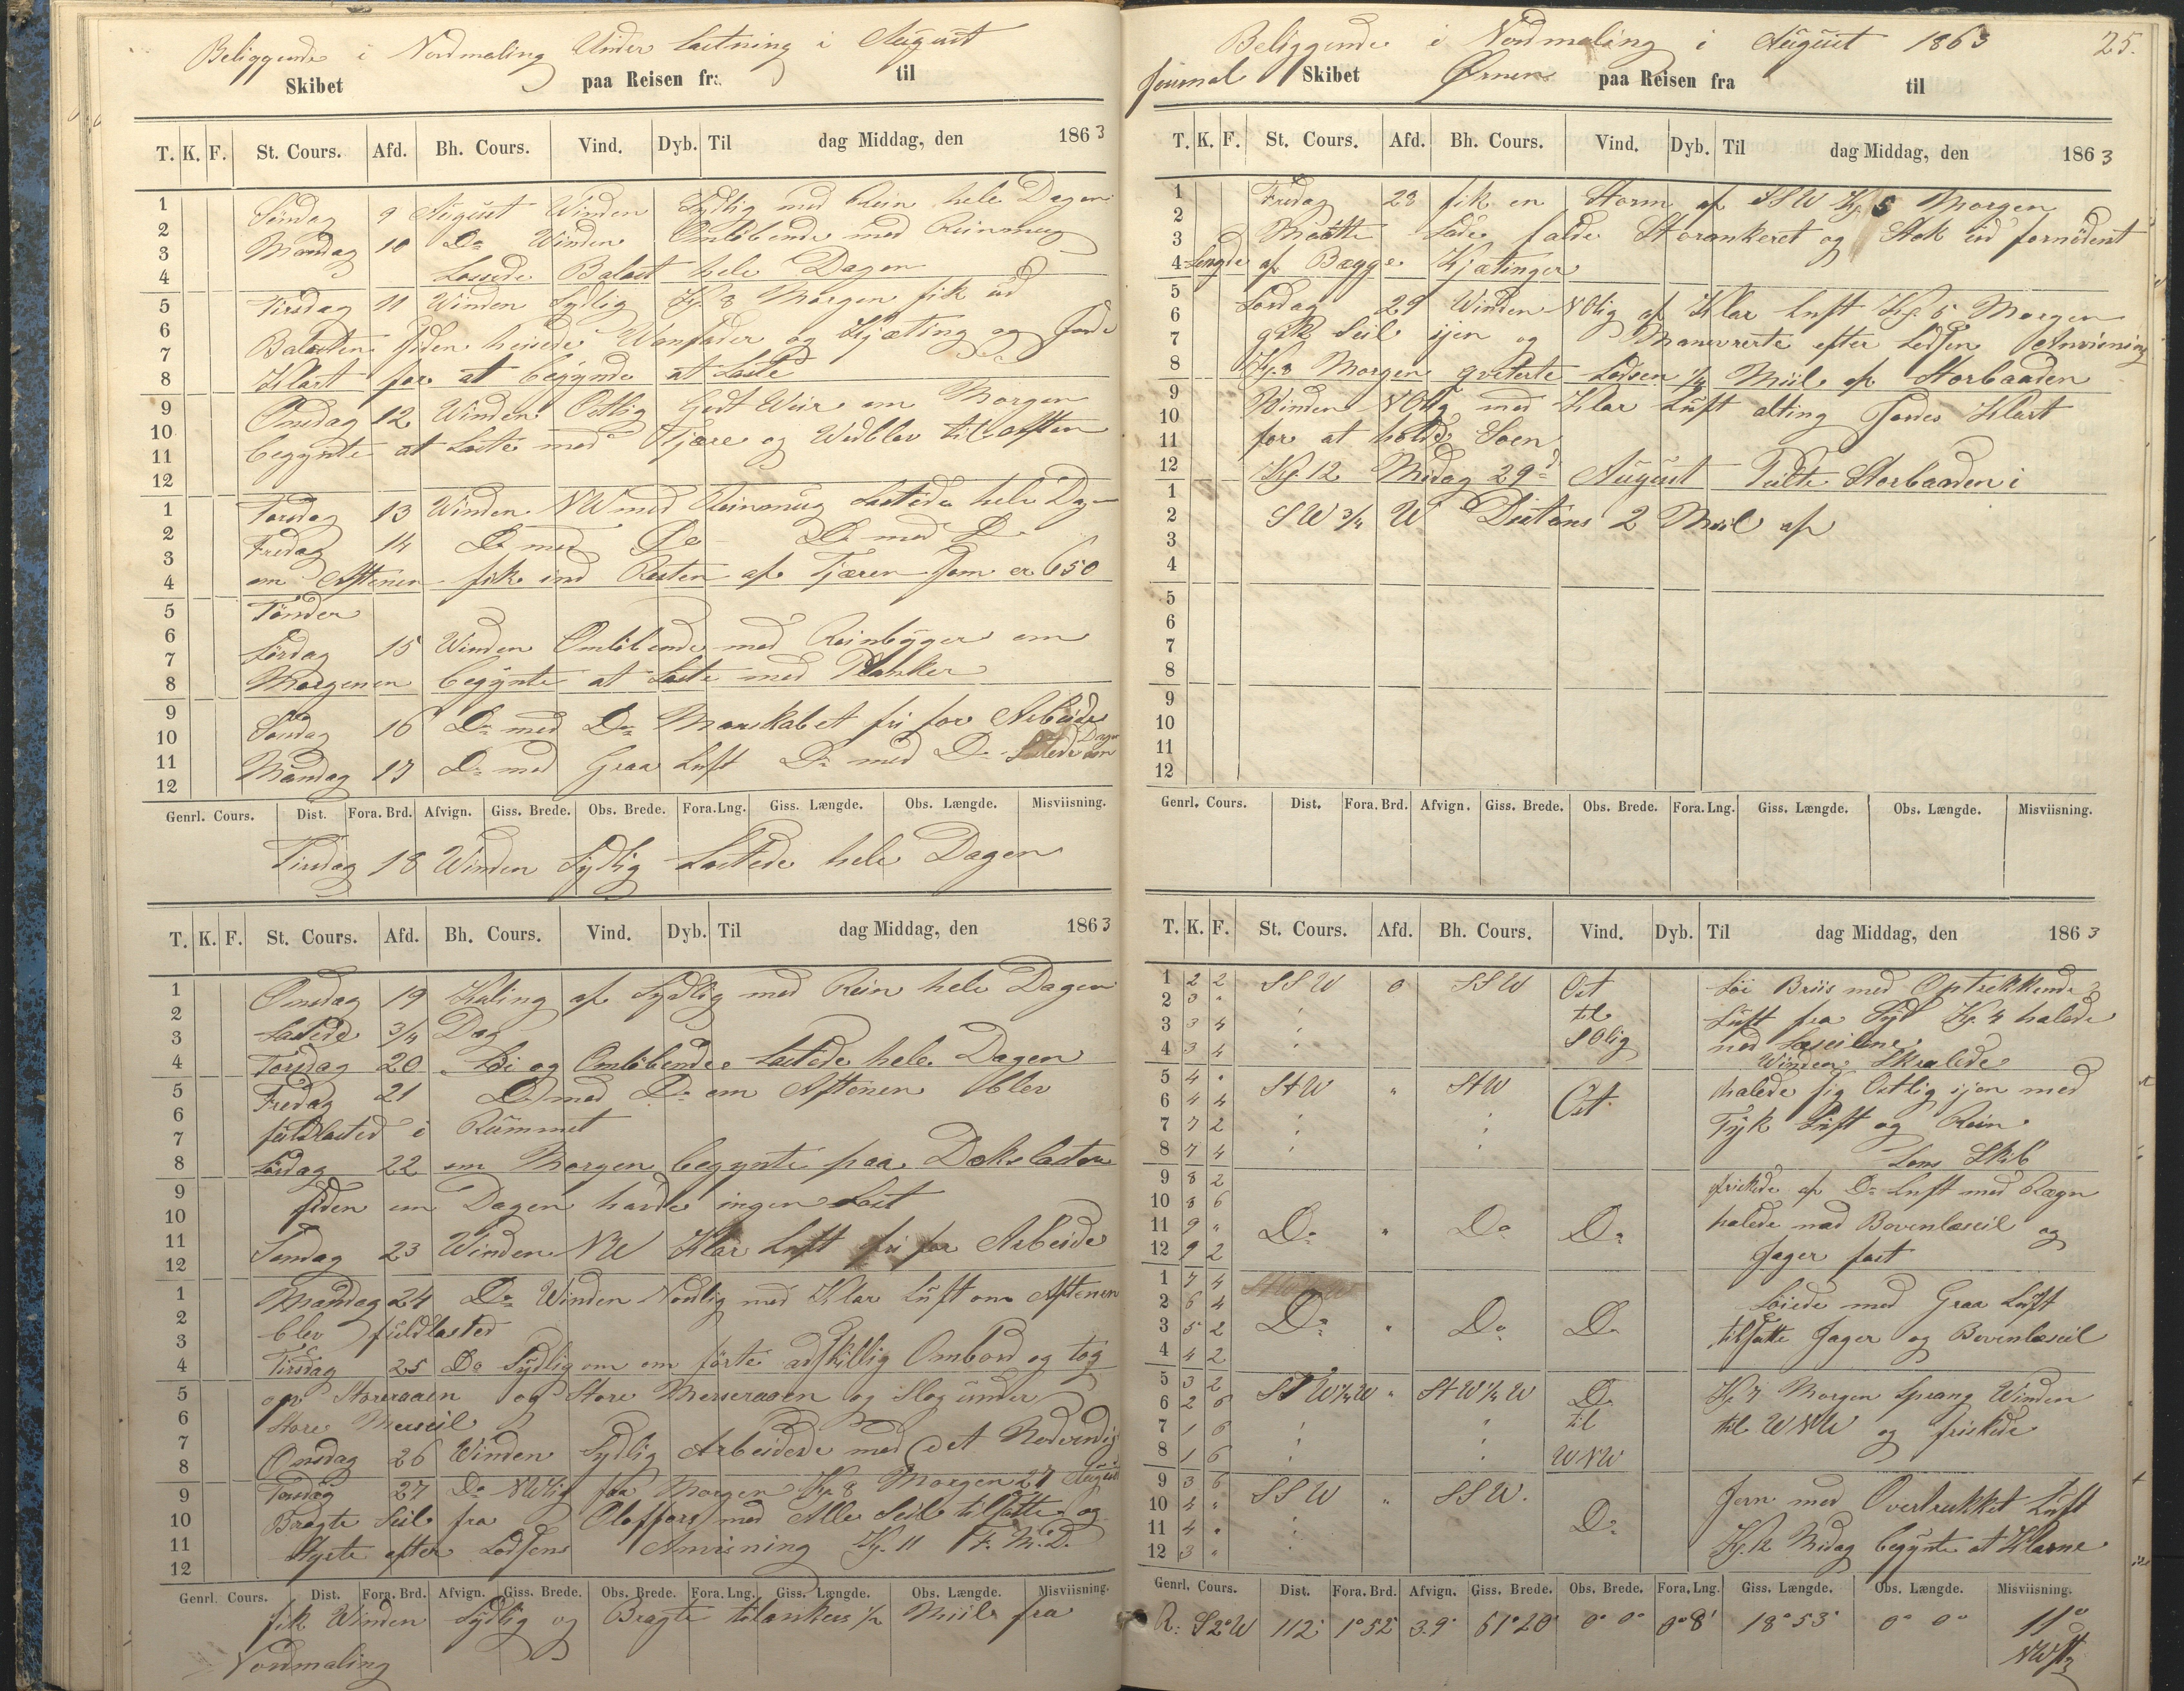 Beliggende i Nordmaling Under Lastning i August
Skibet paa Reisen fra til
T. K. F. St. Cours. Afd. Bh. Cours. Vind. Dyb. Til dag Middag, den 1863
1 Søndag 9 August Winden Sydlig med Rein hele Dagen
2
3 Mandag 10 Do Winden Omløbende med Reinmug
4 Lossede Balast hele Dagen
5 Tirsdag 11 Winden Sydlig Kl. 8 Morgen fik ud
6 Balasten siden heisede Wanfader og Kjæting og Jorde
7
8 Klart for at begynde at Laste
9 Onsdag 12 Winden Ostlig Godt Weir om Morgen
10 begynte at Laste med Tjære og Wedblev til Aften
11
12
1 Torsdag 13 Winden NW med Reinmug Lastede hele Dagen
2 Fredag 14 Do med Do Do med Do
3
4 om Aftenen fik ind Resten af Tjæren som er 650
5 Tønder
6
7 Lørdag 15 Winden Omløbende med Reinbyger om
8 Morgenen begynte at Laste med Planker
9
10 Søndag 16 Do med Do Manskabet fri for Arbeide
11
12 Mandag 17 Do med Graa Luft Do med Do Lastede om Dagen
Genrl. Cours. Dist. Fora. Brd. Afvign. Giss. Brede. Obs. Brede. Fora. Lng. Giss. Længde. Obs. Længde. Misviisning.
Tirsdag 18 Winden Sydlig Lastede hele Dagen
T. K. F. St. Cours. Afd. Bh. Cours. Vind. Dyb. Til dag Middag, den 1863
1 Onsdag 19 Kuling af Sydlig med Rein hele Dagen
2
3 Lastede 3/4 Dag
4 Torsdag 20 Løi og Omløbende Lastede hele Dagen
5 Fredag 21 Do med Do om Aftenen blev
6
7 fuldlasted i Rummet
8 Lørdag 22 om Morgen begynte paa Dækslasten
9
10 siden om Dagen havde ingen Last
11
12 Søndag 23 Winden NW Klar Luft fri for Arbeide
1 Mandag 24 Do Winden Nordlig med Klar Luft om Aftenen
2 blev fuldlasted
3
4 Tirsdag 25 Do Sydlig om om førte adskillig Ombord og tog
5 op Storeraaen og Store Merseraaen og Slog under
6 Store Merseil
7
8 Onsdag 26 Winden Sydlig Arbeidede med det Nødvendig
9 Torsdag 27 Do NWlig fra Morgen Kl. 8 Morgen 27 August
10 Bragte Seil fra Oloffors med Alle Seil tilsatte og
11 Styrte efter Lodsens Anvisning Kl. 11 F. M. D.
12
Genrl. Cours. Dist. Fora. Brd. Afvign. Giss. Brede. Obs. Brede. Fora. Lng. Giss. Længde. Obs. Længde. Misviisning.
fik Winden Sydlig og Bragte tilankers 1/2 Miil fra
Nordmaling
Beliggende i Nordmaling i August 1863 25.
Journal Skibet Ørnen paa Reisen fra til
T. K. F. St. Cours. Afd. Bh. Cours. Vind. Dyb. Til dag Middag, den 1863
1 Fredag 28 fik en Storm af SSW Kl. 5 Morgen
2
3 Maatte Lade falde Storankeret og Stak ud fornødent
4 Lengde af Begge Kjætinger
5
6 Lørdag 29 Winden NOlig af Klar Luft Kl. 5 Morgen
7 gik Seil igen og Manuvrerte efter Lodsen Anvisning
8 Kl. 8 Morgen qviterte Lodsen 1/4 Miil af Storbaaden
9
10 Winden NOlig med Klar Luft alting Jordes Klart
11 for at holde Søen
12 Kl. 12 Midag 29d August Peilte Storbaaden i
1
2 SW 3/4 W Distans 2 Miil af
3
4
5
6
7
8
9
10
11
12
Genrl. Cours. Dist. Fora. Brd. Afvign. Giss. Brede. Obs. Brede. Fora. Lng. Giss. Længde. Obs. Længde. Misviisning.
T. K. F. St. Cours. Afd. Bh. Cours. Vind. Dyb. Til dag Middag, den 1863
1 2 2 SSW 0 SSW Ost Løi Briis med Optrekkende
2 3 " til Luft fra Syd Kl. 4 halede
3 3 4 SOlig ned Læseilene
4 3 4 Winden Skralede
5 4 " StW " StW halede sig Ostlig igen med
6 4 4 Ost Tyk Luft og Rein
7 7 2
8 7 4 Lens Skib
9 8 2 friskede af Do Luft med Regn
10 8 6 halede ned Bovenlæseil og
11 9 " Do " Do Do
12 9 2 Jager fast
1 7 4 Løiede med Graa Luft
2 6 4 Do " Do Do tilsatte Jager og Bovenlæseil
3 5 2
4 4 2
5 3 2 StW1/4W " StW1/4W Do Kl. 7 Morgen Sprang Winden
6 2 6 til til WNW og friskede
7 1 6
8 1 6 WNW
9 3 6 SSW " SSW. Jevn med Overtrukket Luft
10 4 " Do
11 4 "
12 3 " Kl. 12 Midag begynte at Klarne
Genrl. Cours. Dist. Fora. Brd. Afvign. Giss. Brede. Obs. Brede. Fora. Lng. Giss. Længde. Obs. Længde. Misviisning.
R: S2°W 112' 1°52' 3.9' 61°20' 0° 0° 0°8' 18°53' 0° 0° 11° NWstg